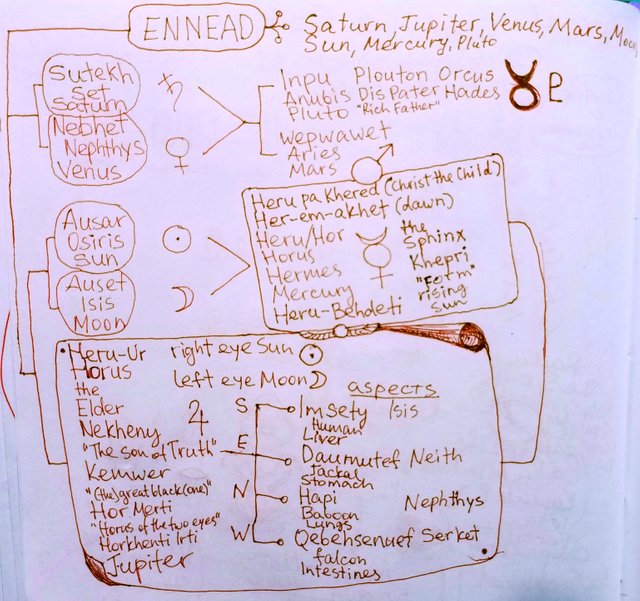 ENNEAD
Saturn, Jupiter, Venus, Mars, Moon
Sun, Mercury, Pluto
Sutekh
Set
Saturn
♄
Nebhet
Nephthys
Venus
♀
Inpu Plouton Orcus
Anubis Dis Pater Hades
Pluto "Rich Father"
♇
wepwawet
Aries
Mars
♂
Ausar
Osiris
Sun
☉
Auset
Isis
Moon
☽
Heru pa Khered (Christ the Child)
Her-em-akhet (dawn)
Heru/Hor the
Horus Sphinx
Hermes Khepri
Mercury "Form"
Heru-Behdeti rising
sun
☿
Heru-Ur right eye Sun ☉
Horus left eye Moon ☽
the
Elder
Nekheny
♃
"The son of Truth"
Kemwer
"(the) great black (one)"
Hor Merti
"Horus of the two eyes"
Horkhenti Irti
Jupiter
aspects
S Imsety Isis
Human
Liver
E Daumutef Neith
Jackal
Stomach
N Hapi Nephthys
Baboon
Lungs
W Qebehsenuef Serket
falcon
Intestines